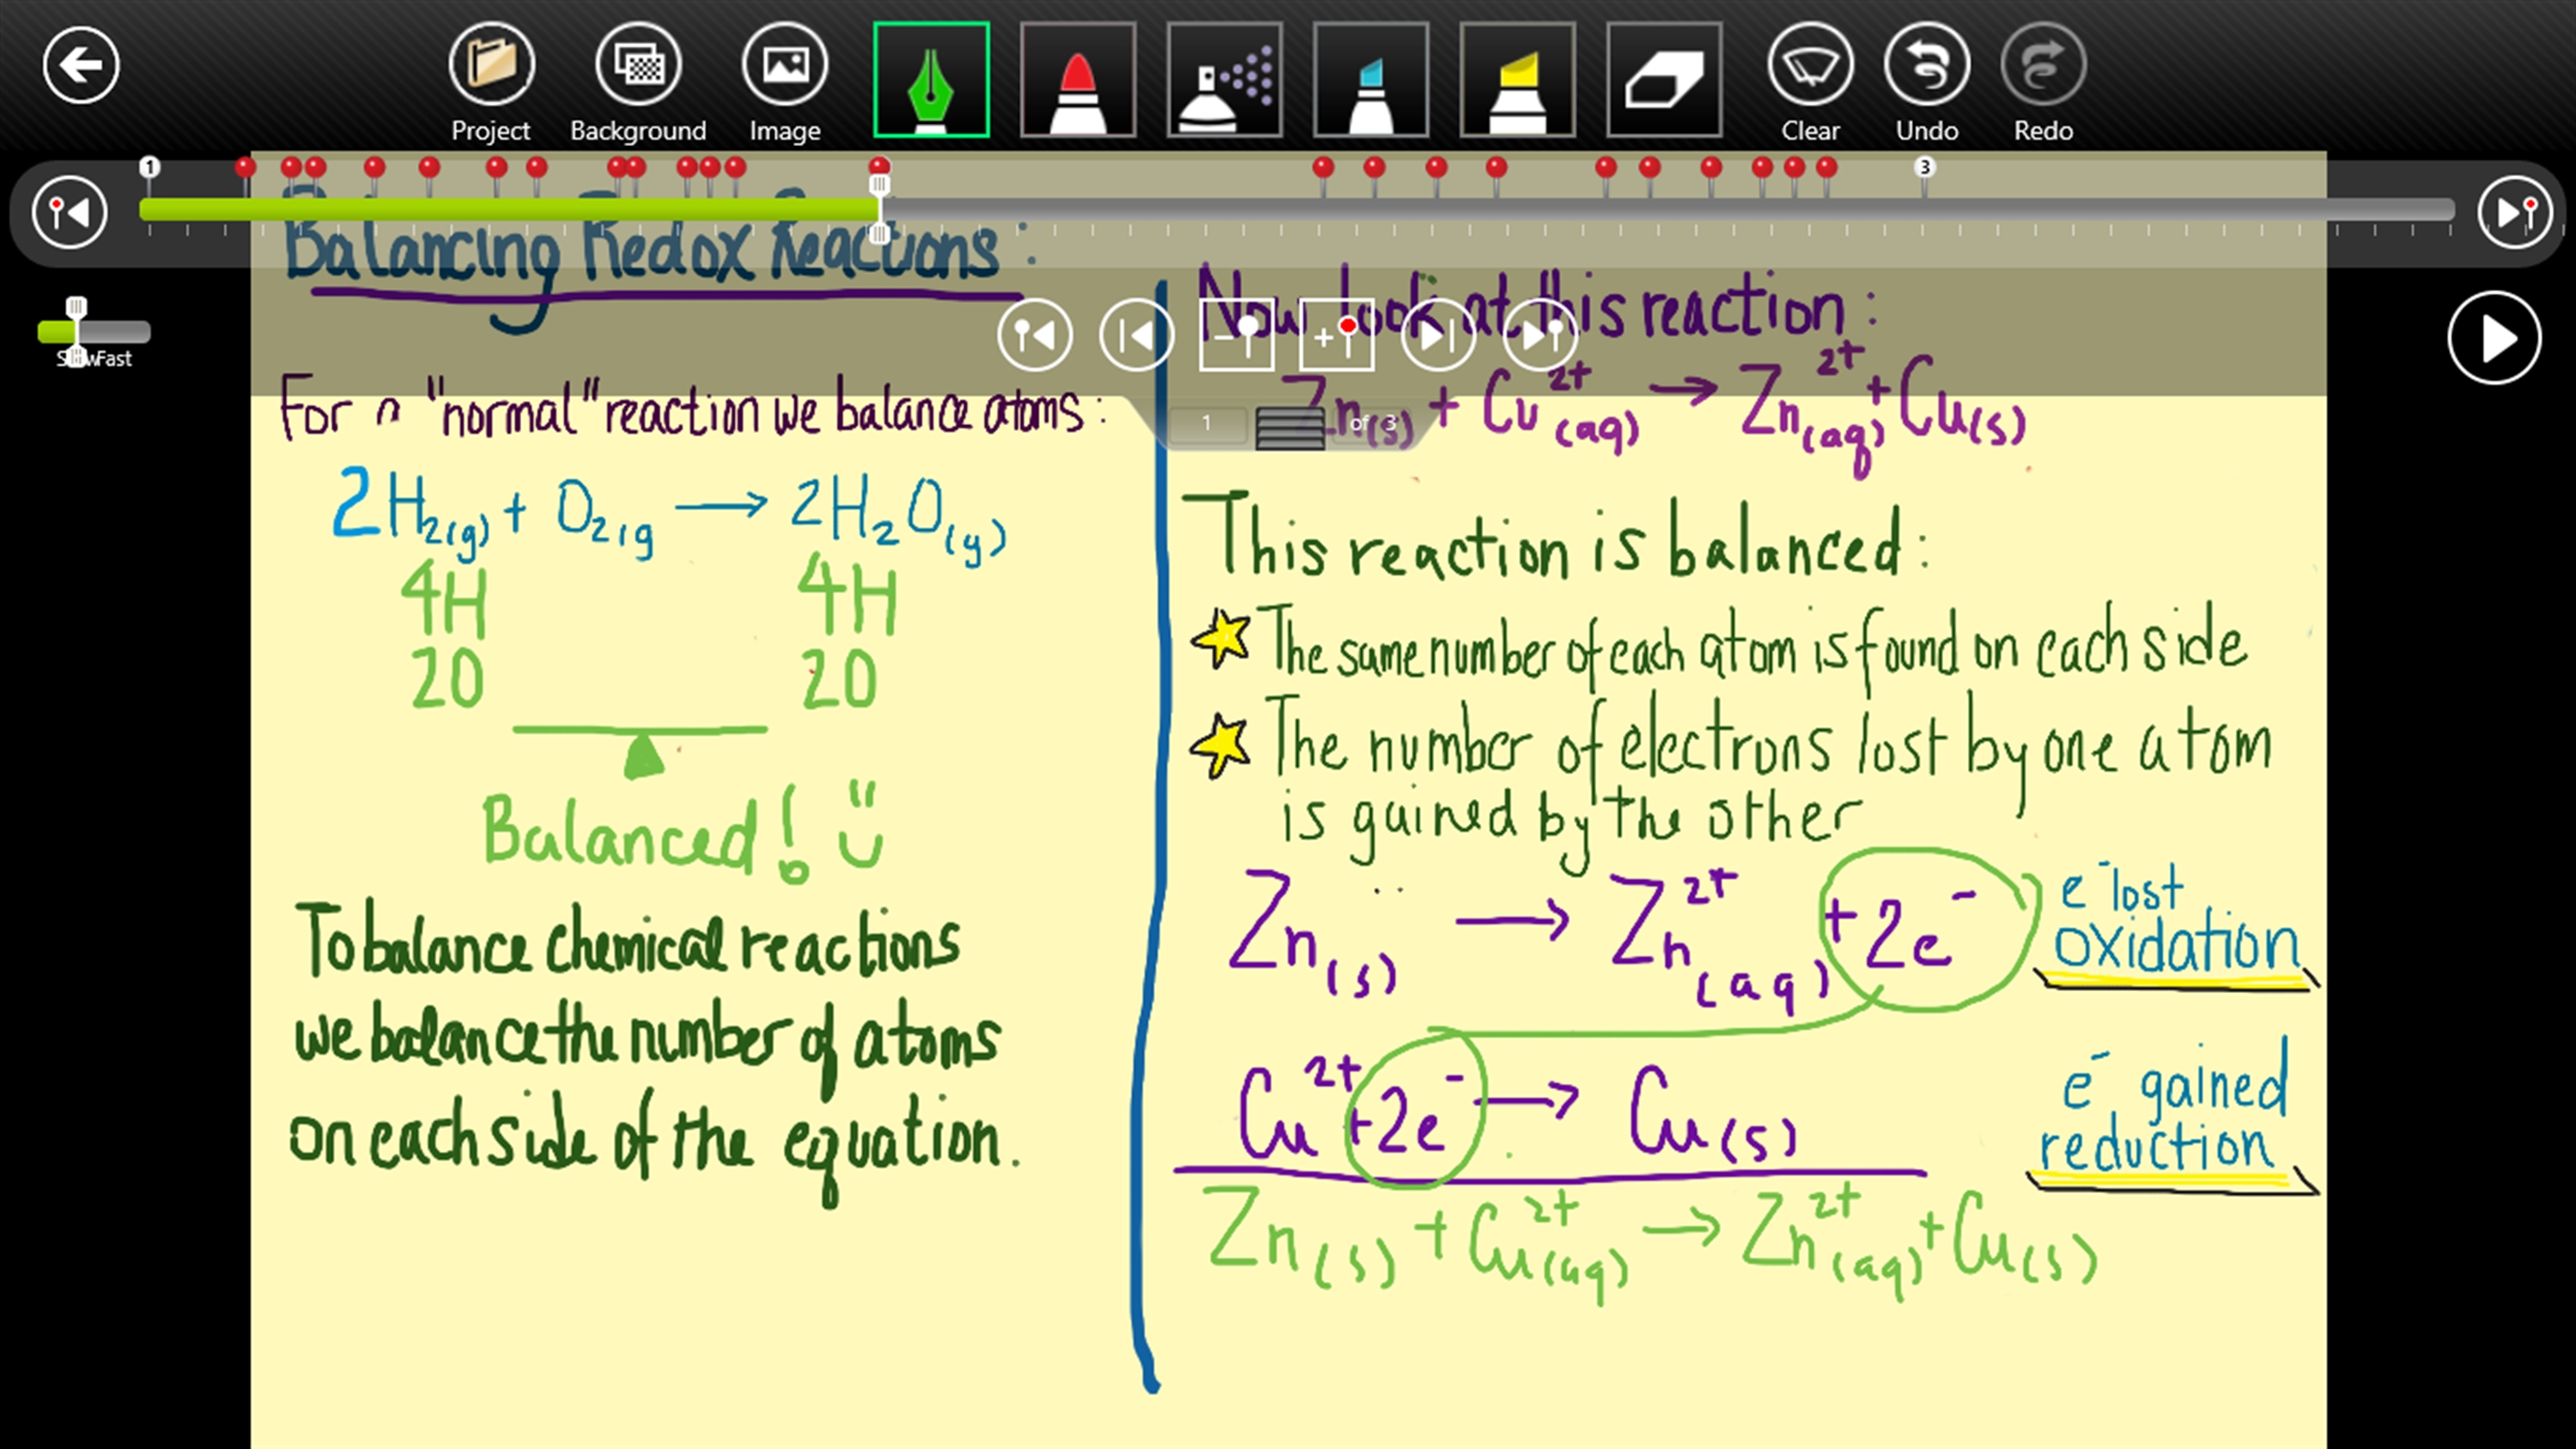 Project
Background
Image
Clear
Undo
Redo
1
3
Slow Fast
Balancing Redox Reactions:
For a "normal" reaction we balance atoms:
2H₂(g) + O₂(g → 2H₂O(g)
4H 4H
2O 2O
Balanced!
To balance chemical reactions
we balance the number of atoms
on each side of the equation.
Now look at this reaction:
Zn(s) + Cu²⁺(aq) → Zn²⁺(aq) + Cu(s)
1 of 3
This reaction is balanced:
The same number of each atom is found on each side
The number of electrons lost by one atom
is gained by the other
Zn(s) → Zn²⁺(aq) +2e⁻
e⁻ lost
oxidation
Cu²⁺ +2e⁻ → Cu(s)
e⁻ gained
reduction
Zn(s) + Cu²⁺(aq) → Zn²⁺(aq) + Cu(s)